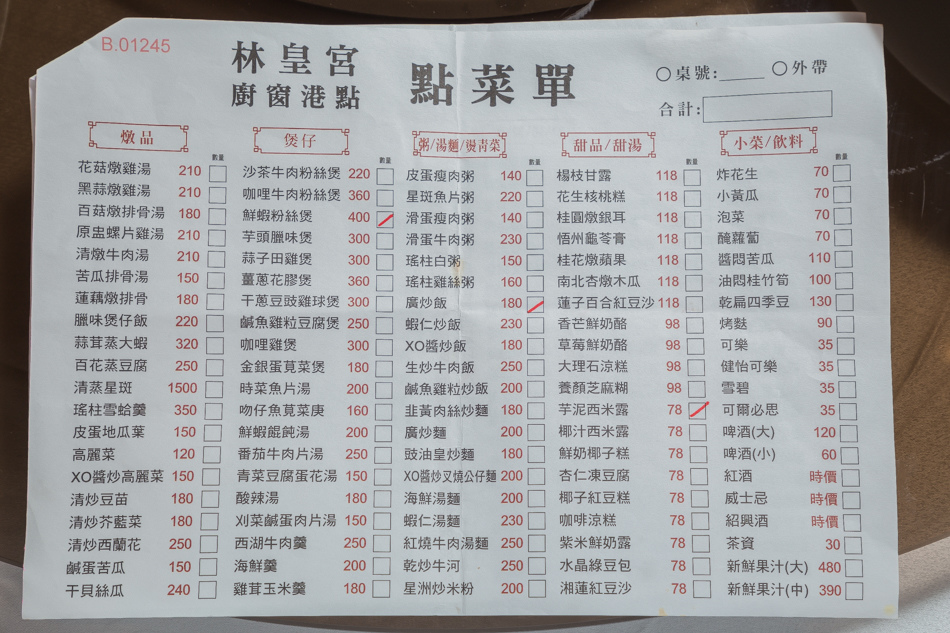 B.01245
林皇宮
廚窗港點
點菜單
桌號:
外帶
合計:
燉品
數量
花菇燉雞湯 210
黑蒜燉雞湯 210
百菇燉排骨湯 180
原盅螺片雞湯 210
清燉牛肉湯 210
苦瓜排骨湯 150
蓮藕燉排骨 180
臘味煲仔飯 220
蒜茸蒸大蝦 320
百花蒸豆腐 250
清蒸星斑 1500
瑤柱雪蛤羹 350
皮蛋地瓜葉 150
高麗菜 120
XO醬炒高麗菜 150
清炒豆苗 180
清炒芥藍菜 180
清炒西蘭花 250
鹹蛋苦瓜 150
干貝絲瓜 240
煲仔
數量
沙茶牛肉粉絲煲 220
咖哩牛肉粉絲煲 360
鮮蝦粉絲煲 400
芋頭臘味煲 300
蒜子田雞煲 300
薑蔥花膠煲 360
干蔥豆豉雞球煲 300
鹹魚雞粒豆腐煲 250
咖哩雞煲 300
金銀蛋莧菜煲 180
時菜魚片湯 200
吻仔魚莧菜庚 160
鮮蝦餛飩湯 200
番茄牛肉片湯 250
青菜豆腐蛋花湯 150
酸辣湯 180
刈菜鹹蛋肉片湯 150
西湖牛肉羹 250
海鮮羹 200
雞茸玉米羹 180
粥/湯麵/燙青菜
數量
皮蛋瘦肉粥 140
星斑魚片粥 220
滑蛋瘦肉粥 140
滑蛋牛肉粥 230
瑤柱白粥 150
瑤柱雞絲粥 160
廣炒飯 180
蝦仁炒飯 230
XO醬炒飯 180
生炒牛肉飯 250
鹹魚雞粒炒飯 200
韭黃肉絲炒麵 180
廣炒麵 200
豉油皇炒麵 180
XO醬炒叉燒公仔麵 200
海鮮湯麵 200
蝦仁湯麵 230
紅燒牛肉湯麵 250
乾炒牛河 250
星洲炒米粉 200
甜品/甜湯
數量
楊枝甘露 118
花生核桃糕 118
桂圓燉銀耳 118
悟州龜苓膏 118
桂花燉蘋果 118
南北杏燉木瓜 118
蓮子百合紅豆沙 118
香芒鮮奶酪 98
草莓鮮奶酪 98
大理石涼糕 98
養顏芝麻糊 98
芋泥西米露 78
椰汁西米露 78
鮮奶椰子糕 78
杏仁凍豆腐 78
椰子紅豆糕 78
咖啡涼糕 78
紫米鮮奶露 78
水晶綠豆包 78
湘蓮紅豆沙 78
小菜/飲料
數量
炸花生 70
小黃瓜 70
泡菜 70
醃蘿蔔 70
醬悶苦瓜 110
油悶桂竹筍 100
乾扁四季豆 130
烤麩 90
可樂 35
健怡可樂 35
雪碧 35
可爾必思 35
啤酒(大) 120
啤酒(小) 60
紅酒 時價
威士忌 時價
紹興酒 時價
茶資 30
新鮮果汁(大) 480
新鮮果汁(中) 390